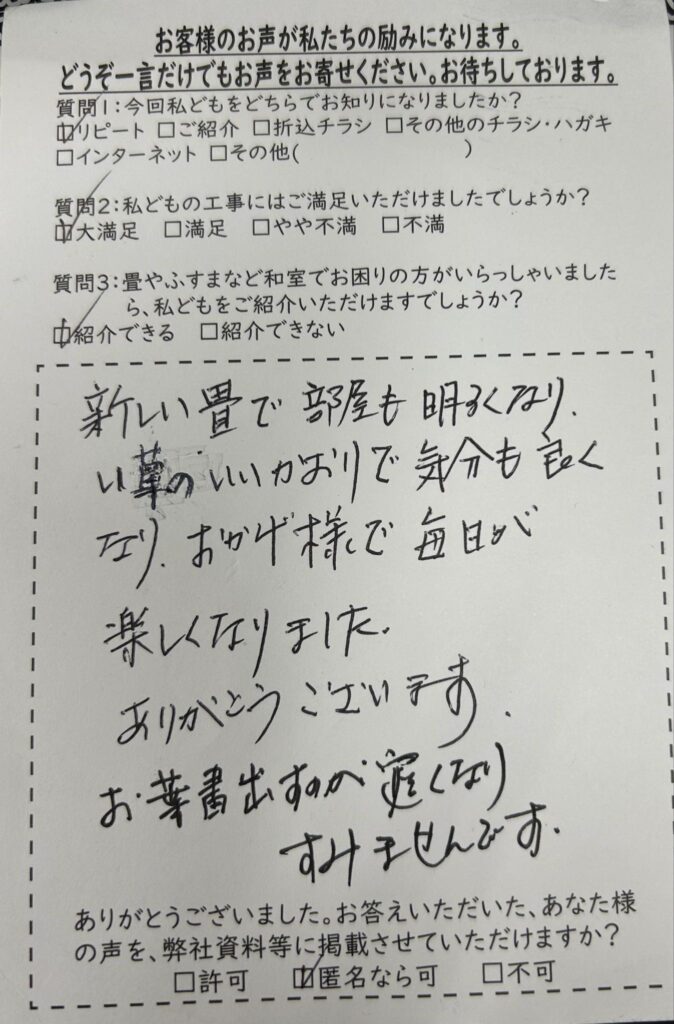 お客様のお声が私たちの励みになります。
どうぞ一言だけでもお声をお寄せください。お待ちしております。
質問1:今回私どもをどちらでお知りになりましたか?
☑リピート □ご紹介 □折込チラシ □その他のチラシ・ハガキ
□インターネット □その他( )
質問2:私どもの工事にはご満足いただけましたでしょうか?
☑大満足 □満足 □やや不満 □不満
質問3:畳やふすまなど和室でお困りの方がいらっしゃいました
ら、私どもをご紹介いただけますでしょうか?
☑紹介できる □紹介できない
新しい畳で部屋も明るくなり、
い草のいいかおりで気分も良く
なり、おかげ様で毎日が
楽しくなりました。
ありがとうございます。
お葉書出すのが遅くなり
すみませんです。
ありがとうございました。お答えいただいた、あなた様
の声を、弊社資料等に掲載させていただけますか?
□許可 ☑匿名なら可 □不可